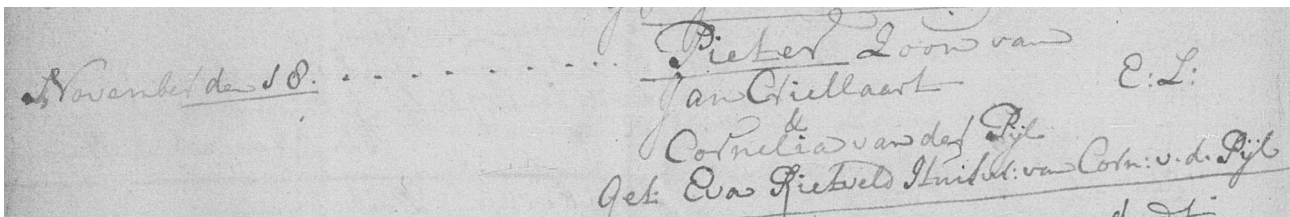 November den 18. . . . . . . . . . . Pieter Zoon van
Jan Criellaart E: L:
&
Cornelia van der Pijl
Get: Eva Rietveld Huisv: van Corn: v. d. Pijl